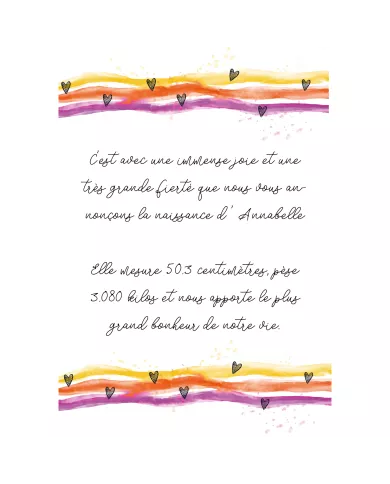 C'est avec une immense joie et une
très grande fierté que nous vous an-
nonçons la naissance d' Annabelle
Elle mesure 50.3 centimètres, pèse
3.080 kilos et nous apporte le plus
grand bonheur de notre vie.